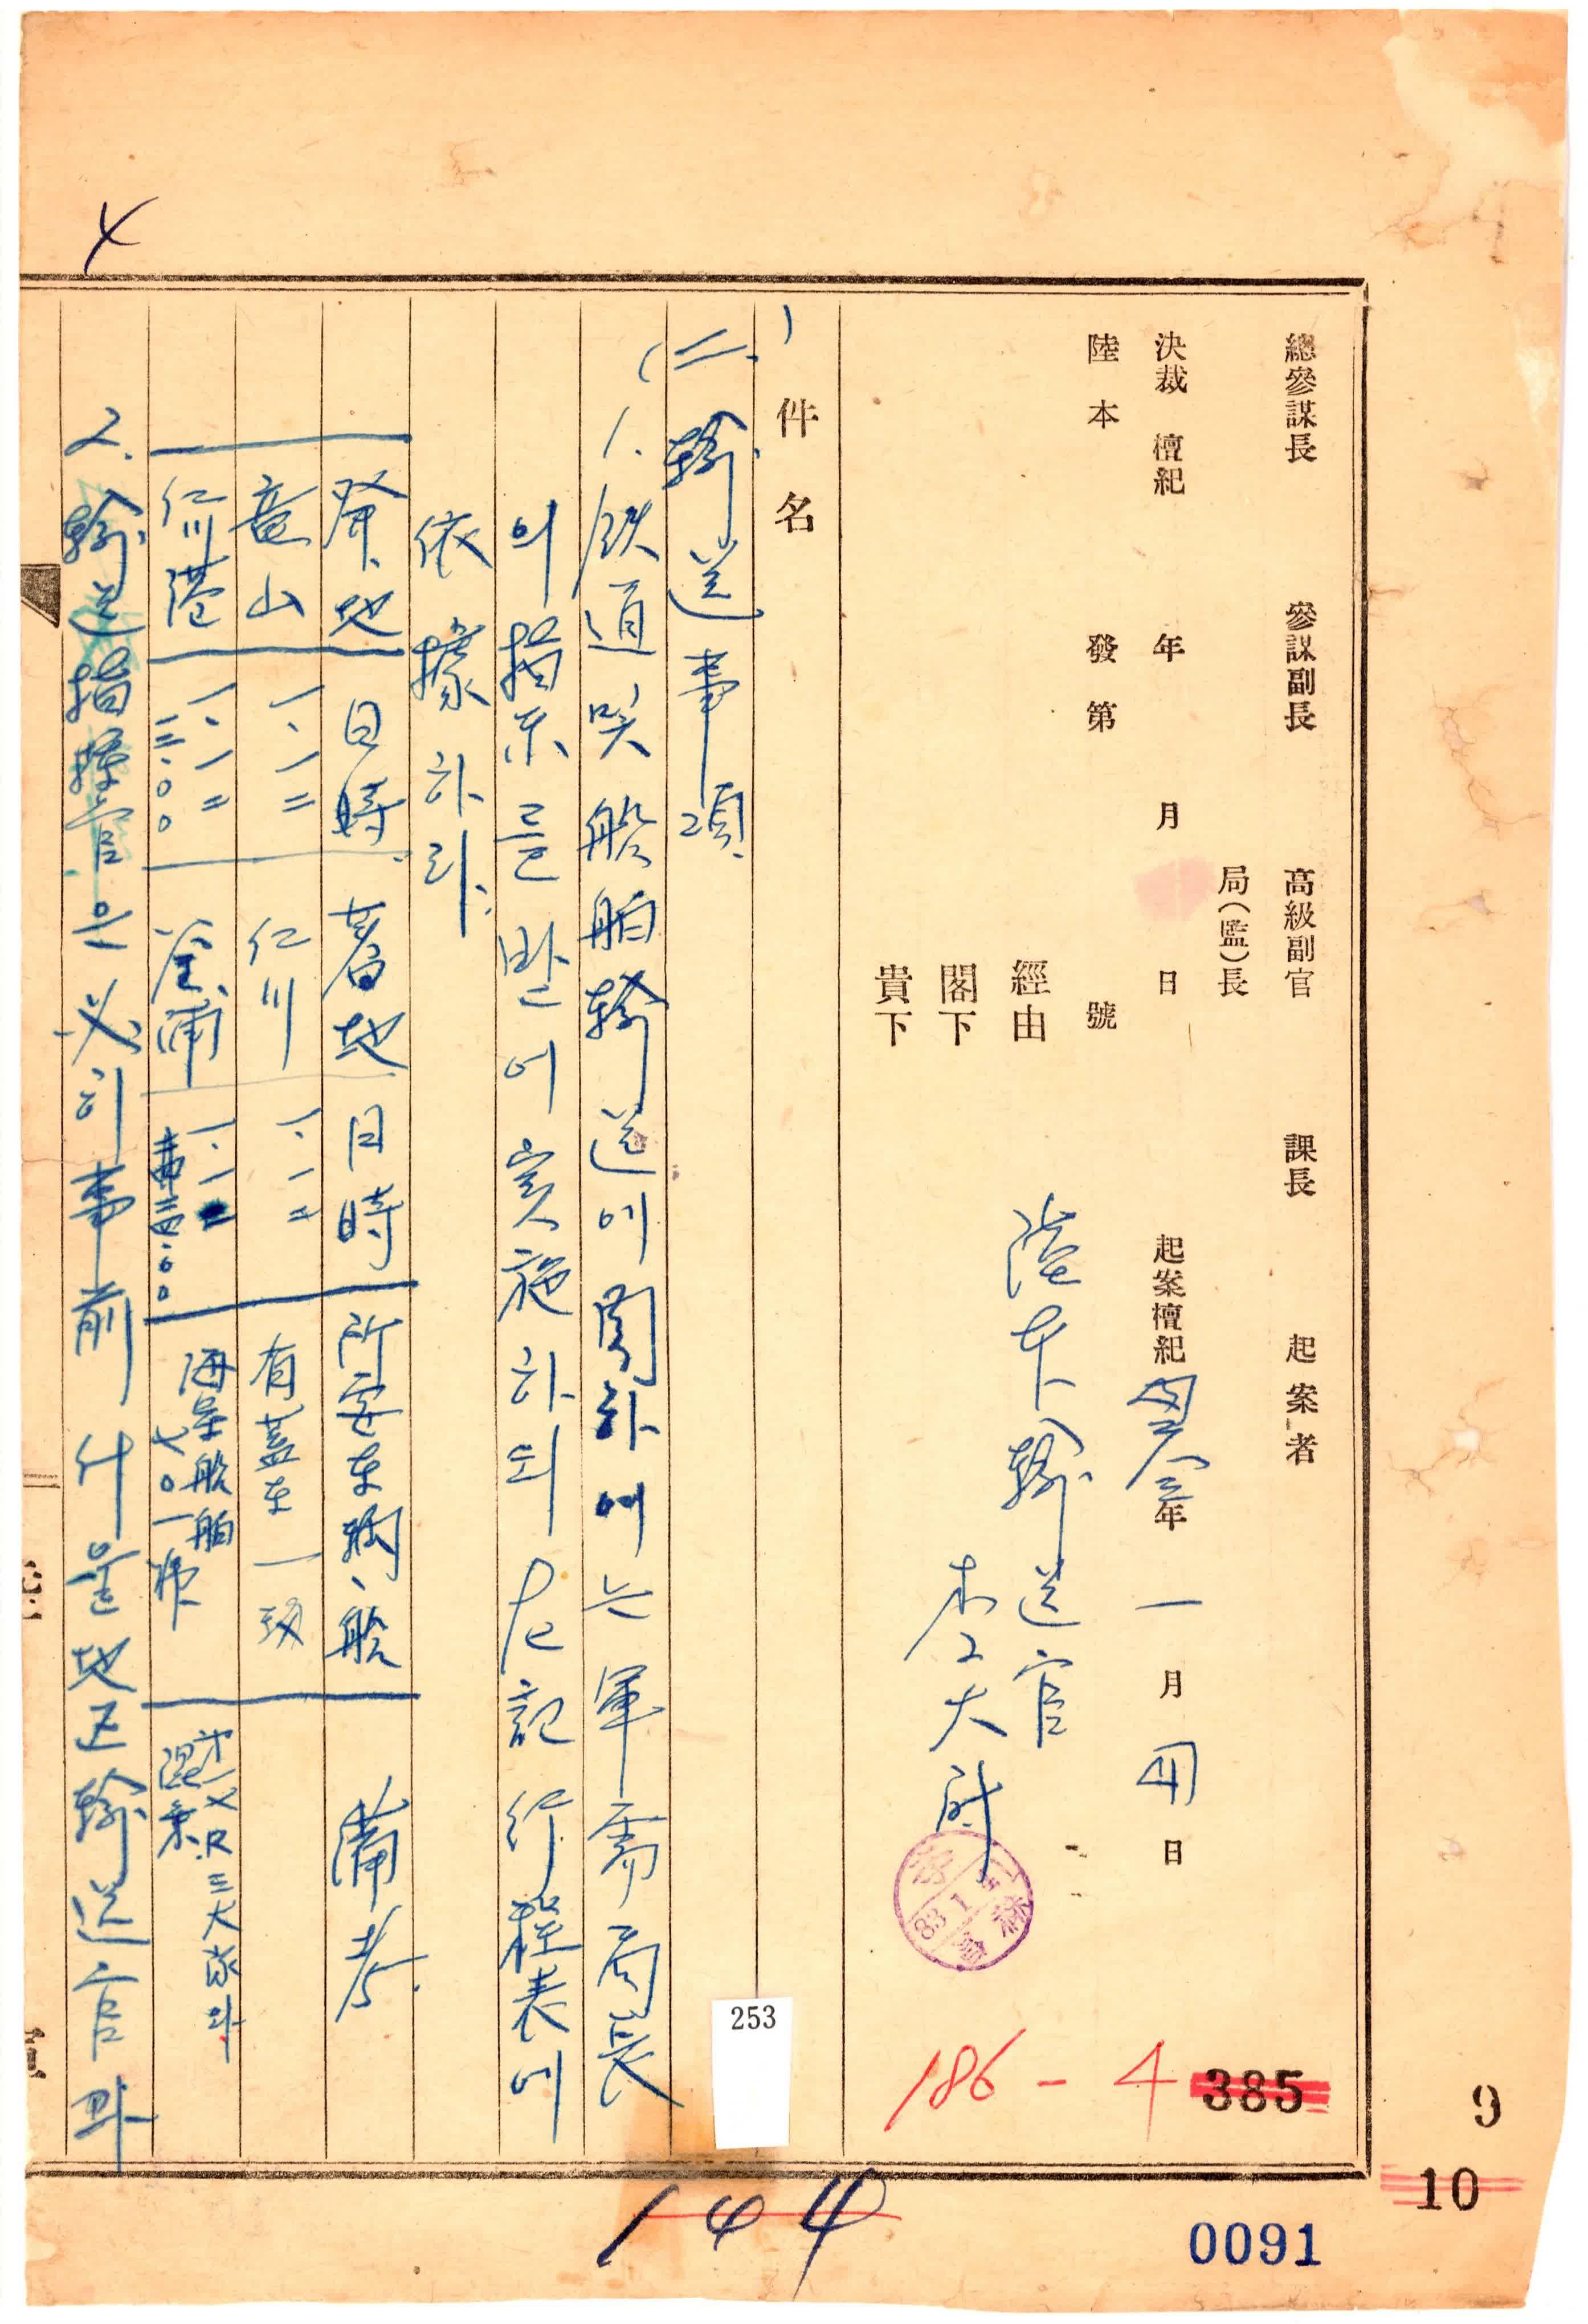 總參謀長 參謀副長 高級副官 課長 起案者
局(監)長
決裁 檀紀 年 月 日 起案檀紀 年 一月 日
陸本 發第 號
經由 陸本輸送官
閣下 李大尉
貴下
件名
(二) 輸送事項
1. 鉄道 및 船舶輸送에 関하여는 軍需局長
의 指示를 받어 実施하되 左記 行程表에
依據하라.
發地 日時 着地 日時 所要車輛、船 備考
竜山 一、一二 仁川 一、一二 有蓋車 一
仁川港 一、一二 一一 一、一
三.〇〇 海軍船舶
七〇一 三大隊와
混乗
2. 輸送指揮官은 必히 事前 什물 地区輸送官과
4
253
186-4
385
9
10
144
0091
83 1